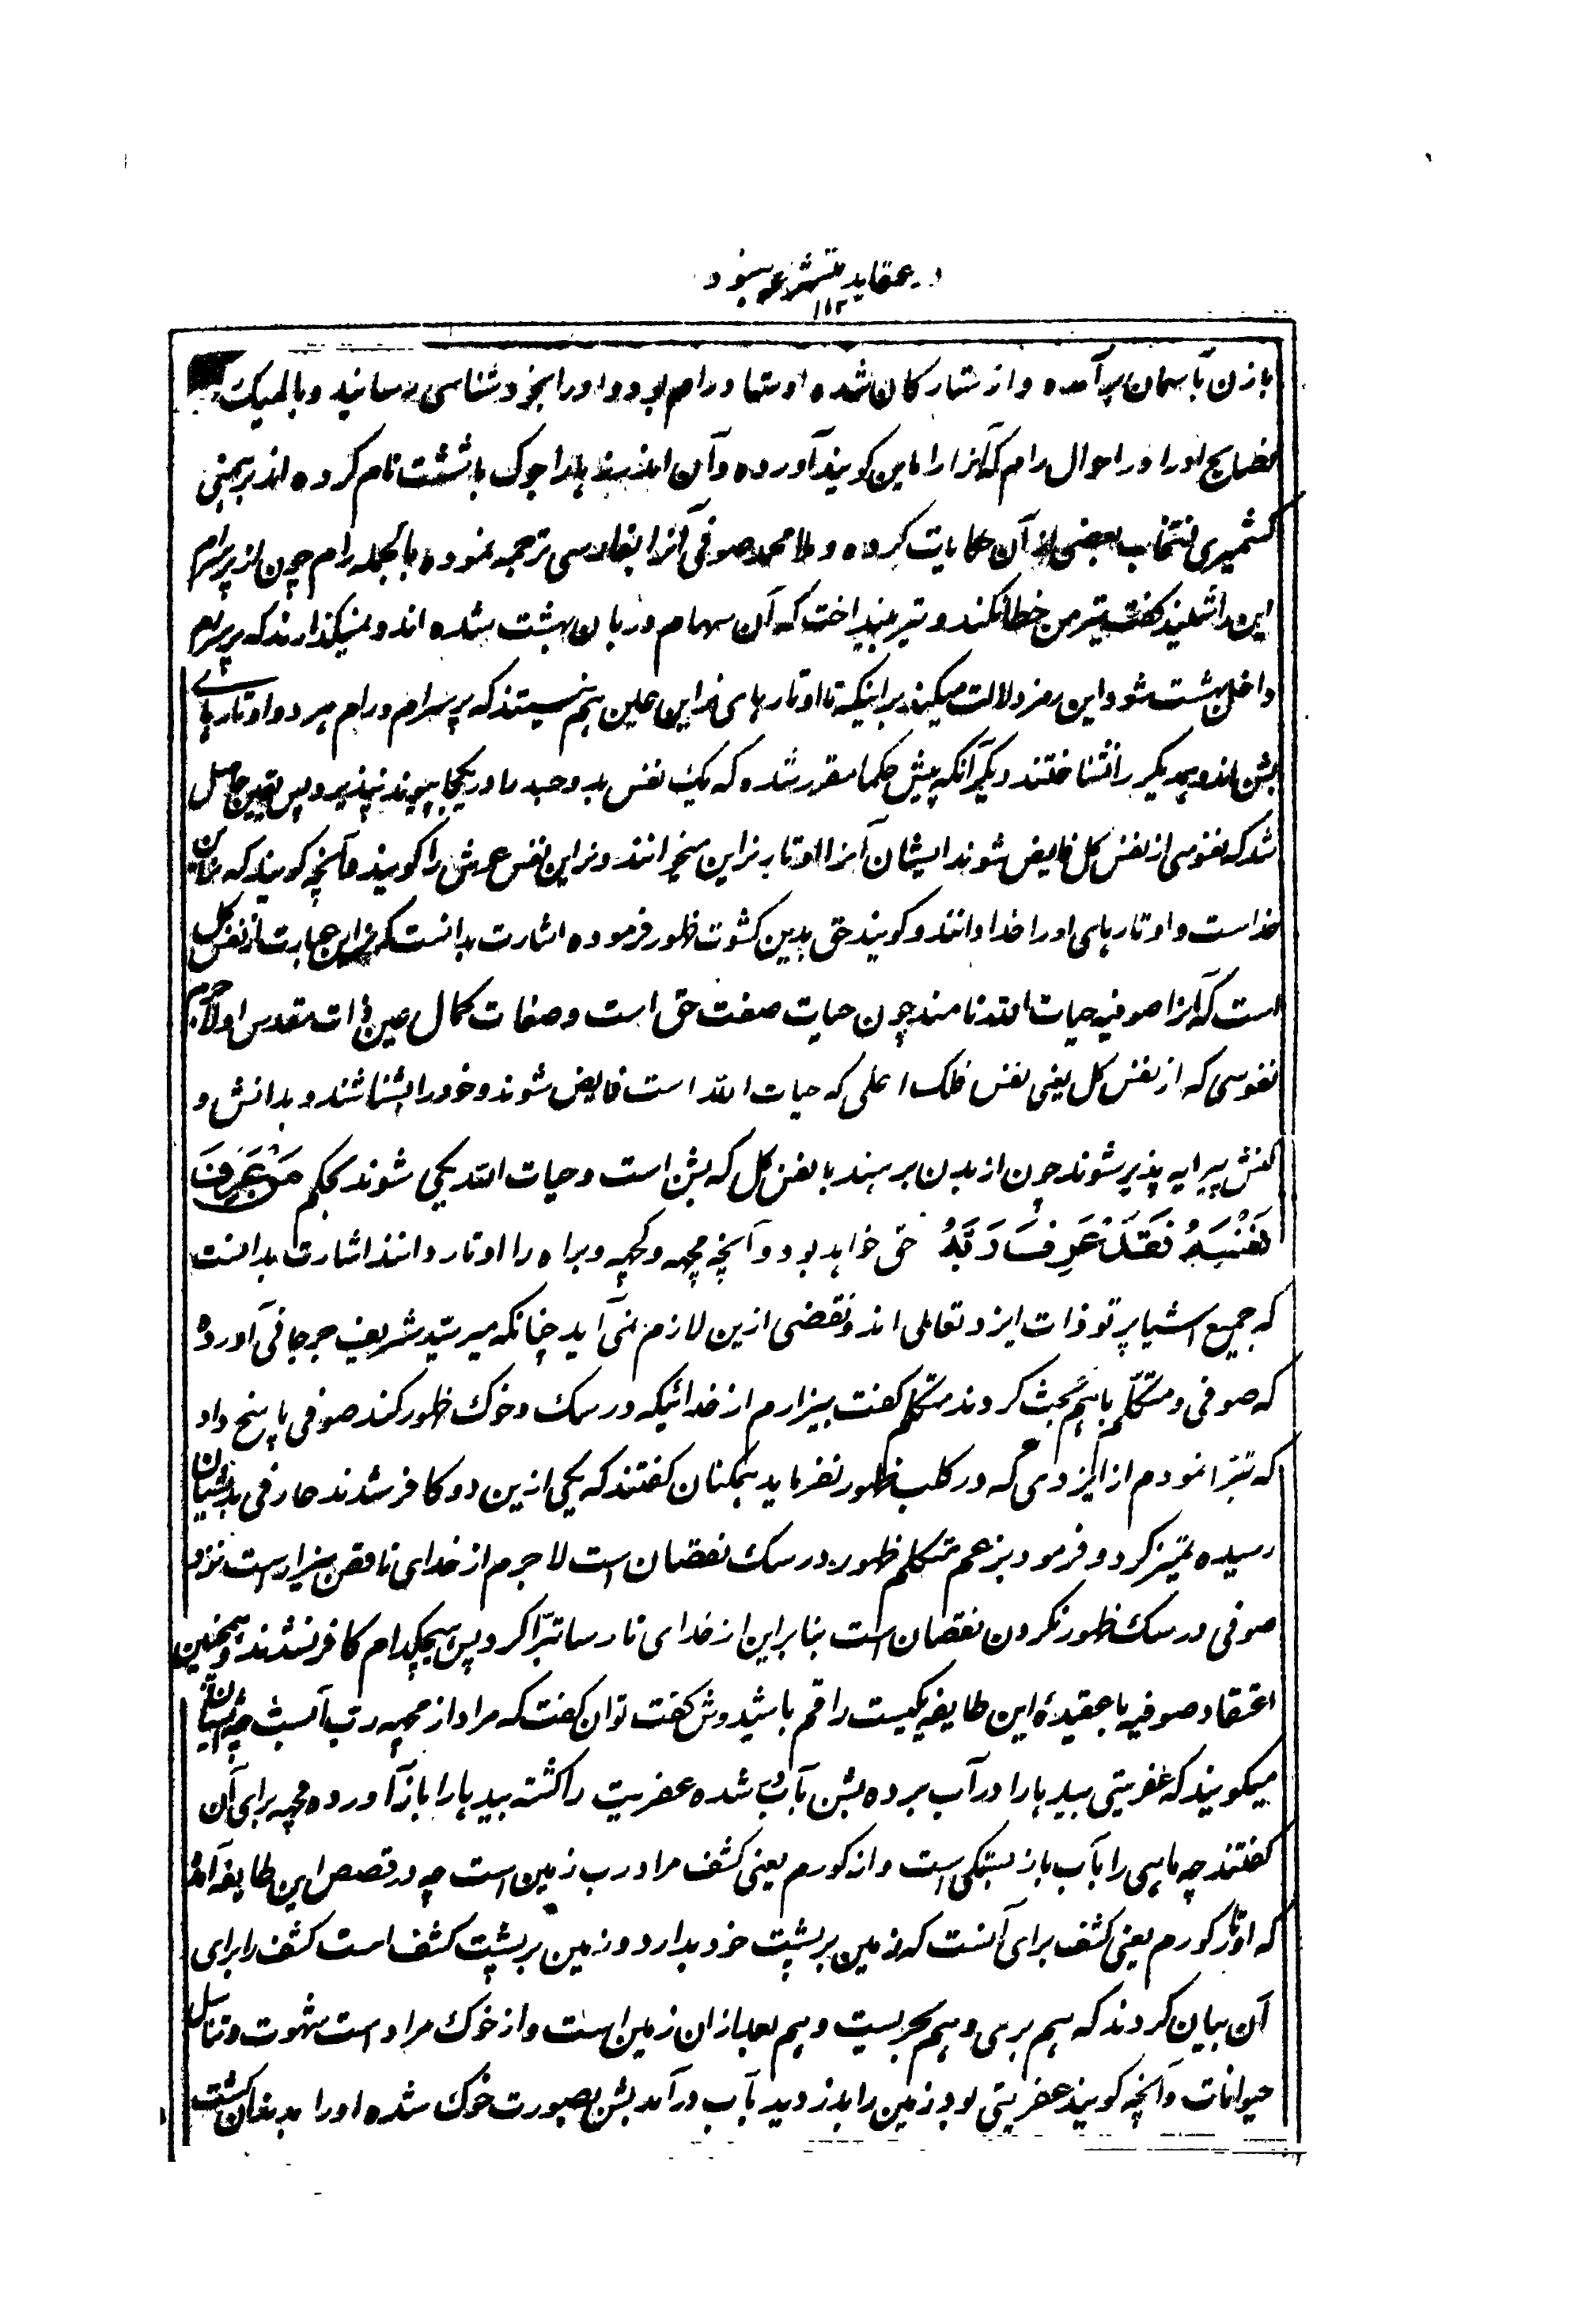 در عقاید متشرعه هنود
۱۱۲
بازن بآسمان برآمده و از ستارگان شده اوستاد رام بود و او را بخودشناسی رسانید و بالمیک
نصایح او را در احوال رام که آنرا راماین گویند آورده و آن اندرزها را جوک باششت نام کرده اند برهمنی
کشمیری انتخاب بعضی از آن حکایات کرده و ملا محمد صوفی آنرا بفارسی ترجمه نموده بالجمله رام چون از پرسرام
این را شنید گفت تیر من خطا نکند و تیر بینداخت که آن سهام دربان بهشت شده اند و نمیگذارند که پرسرام
داخل بهشت شود این رمز دلالت میکند بر اینکه تا اوتارهای نراین علین هم نیستند که پرسرام و رام هر دو اوتارهای
بشن اند و همدیگر را نشناختند دیگر آنکه پیش حکما مقرر شده که یک نفس بدو جسد مادر یکجا پیوند نپذیرد پس یقین حاصل
شد که نفوسی از نفس کل فایض شوند ایشان آنرا اوتار نراین میخوانند و نراین نفس عرش را گویند و آنچه گویند که نراین
خداست و اوتارهای او را خدا دانند و گویند حق بدین کشوت ظهور فرموده اشارت بدانست که نراین عبارت از نفس کل
است که آنرا صوفیه حیات الله نامند چون حیات صفت حق است و صفات کمال عین ذات مقدس او لاجرم
نفوسی که از نفس کل یعنی نفس فلک اعلی که حیات الله است فایض شوند و خود را بشناشند و بدانش و
کنش پیرایه پذیر شوند چون از بدن برهند با نفس کل که بشن است و حیات الله یکی شوند بحکم مَنْ عَرَفَ
نَفْسَهُ فَقَدْ عَرَفَ رَبَّهُ حق خواهد بود و آنچه مچهه و کچهه و براه را اوتار دانند اشارت بدانست
که جمیع اشیا پرتو ذات ایزد تعالی اند و نقضی ازین لازم نمی آید چنانکه میر سید شریف جرجانی آورده
که صوفی و متکلم باهم بحث کردند متکلم گفت بیزارم از خدائیکه در سک و خوک ظهور کند صوفی پاسخ داد
که تبرا نمودم از ایزدی که در کلب ظهور نفرماید همکنان گفتند که یکی ازین دو کافر شدند عارفی بدیشان
رسیده تمیز کرد و فرمود بزعم متکلم ظهور در سک نقصان است لاجرم از خدای ناقص بیزار است نزد
صوفی در سک ظهور نکردن نقصان است بنابراین از خدای نارسا تبرّا کرد پس هیچکدام کافر نشدند و همچنین
اعتقاد صوفیه با عقیدهٔ این طایفه یکیست راقم با شیدوش گفت توان گفت که مراد از مچهه رب آبست چه ایشان
میگویند که عفریتی بیدها را در آب برده بشن بآب شده عفریت را کشته بیدها را باز آورده مچهه برای آن
گفتند چه ماهی را بآب باز بستگی است و از کورم یعنی کشف مراد رب زمین است چه در قصص این طایفه آمده
که اوتار کورم یعنی کشف برای آنست که زمین بر پشت خود بدارد و زمین بر پشت کشف است کشف را برای
آن بیان کردند که هم بری و هم بحریست و هم بعد از آن زمین است و از خوک مراد است شهوت و تناسل
حیوانات و آنچه گویند عفریتی بود زمین را بدزدید بآب درآمد بشن بصورت خوک شده او را بدندان کشت